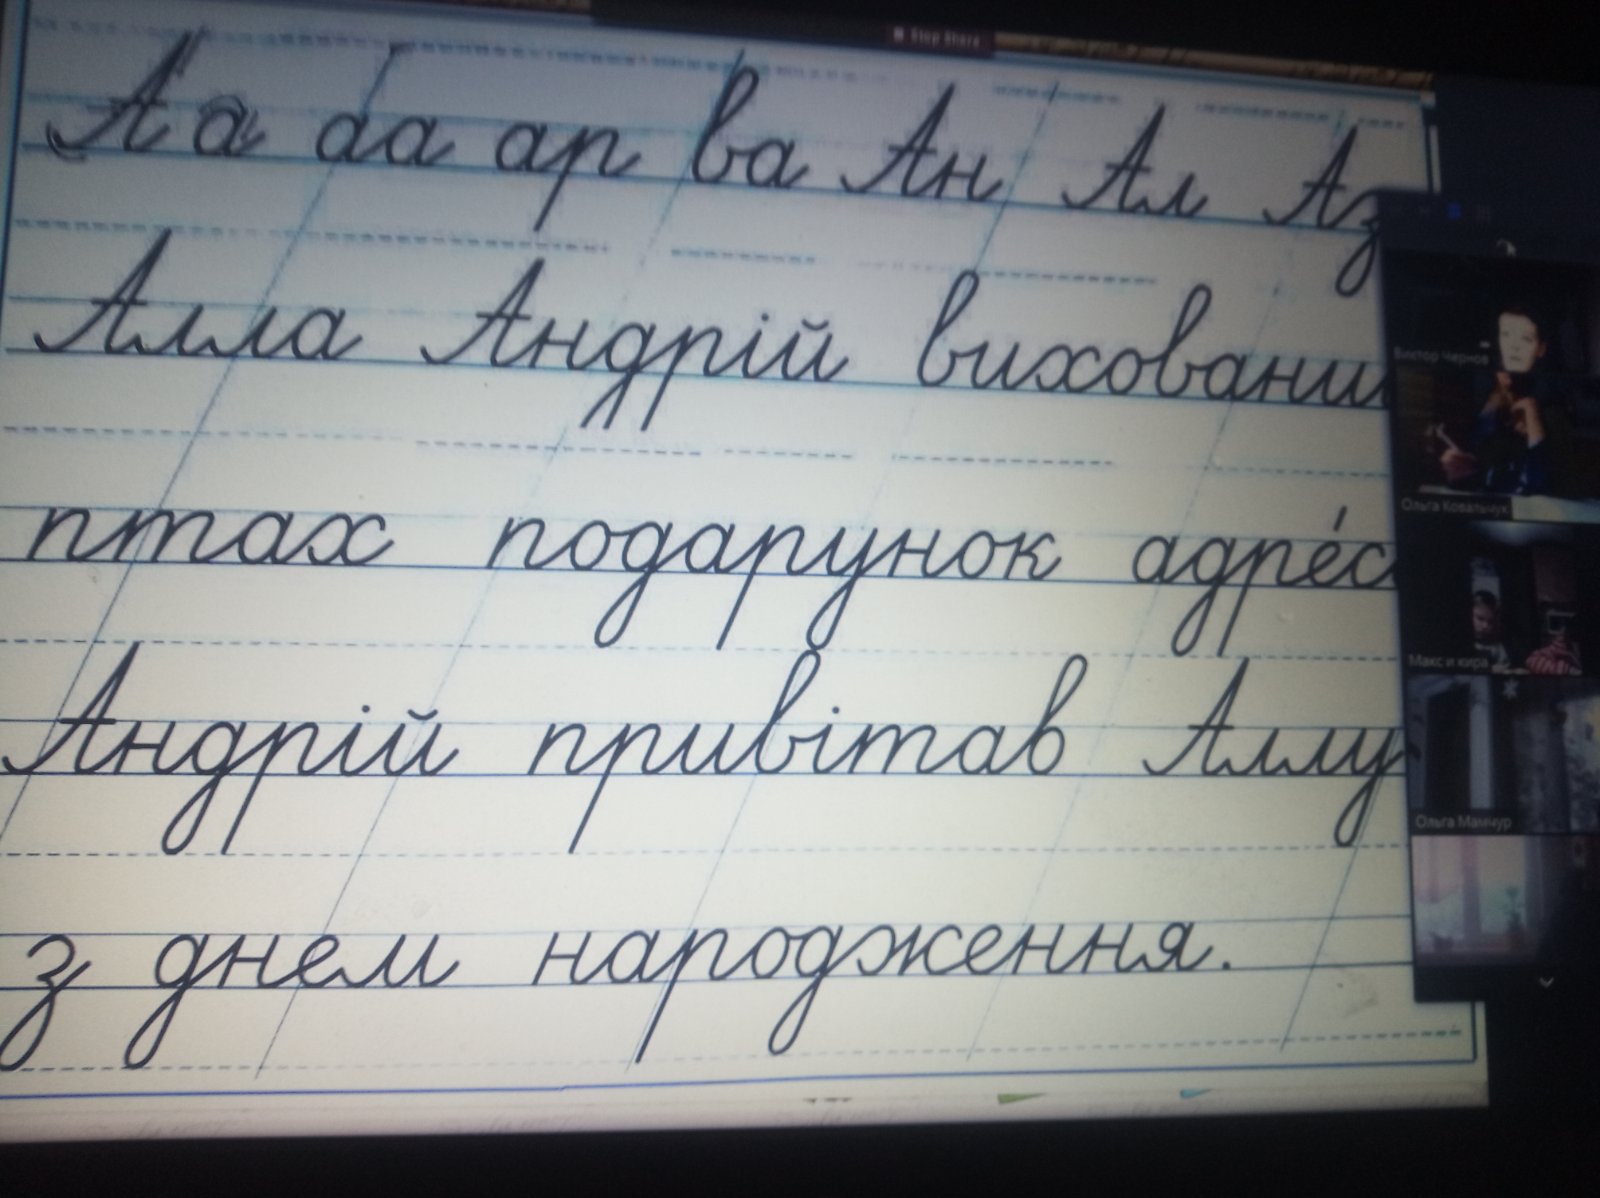 Stop Share
Аа аа ар ва Ан Ал Аз
Алла Андрій
птах подарунок
Андрій привітав Аллу
з днем народження.
Виктор Чернов
Ольга Ковальчук
Макс и кира
Ольга Мамчур